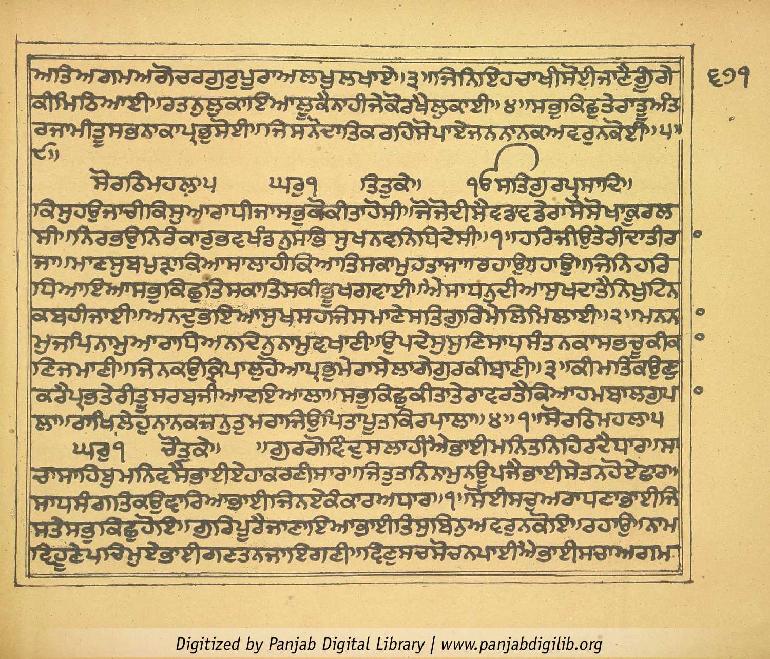 ਅਤਿਅਗਮਅਗੋਚਰਗੁਰੁਪੂਰਾਅਲਖੁਲਖਾਏ॥੩॥ਜਿਨਿਇਹਚਾਖੀਸੋਈਜਾਣੈਗੂੰਗੇ
ਕੀਮਿਠਿਆਈ॥ਰਤਨੁਲੁਕਾਇਆਲੂਕੈਨਾਹੀਜੇਕੋਰਖੈਲੁਕਾਈ॥੪॥ਸਭੁਕਿਛੁਤੇਰਾਤੂਅੰਤ
ਰਜਾਮੀਤੂਸਭਨਾਕਾਪ੍ਰਭੁਸੋਈ॥ਜਿਸਨੋਦਾਤਿਕਰਹਿਸੋਪਾਏਜਨਨਾਨਕਅਵਰੁਨਕੋਈ॥੫॥
੯॥
ਸੋਰਠਿਮਹਲਾ੫ ਘਰੁ੧ ਤਿਤੁਕੇ॥ ੧ਓਸਤਿਗੁਰਪ੍ਰਸਾਦਿ॥
ਕਿਸੁਹਉਜਾਚੀਕਿਸੁਆਰਾਧੀਜਾਸਭੁਕੋਕੀਤਾਹੋਸੀ॥ਜੋਜੋਦੀਸੈਵਡਾਵਡੇਰਾਸੋਸੋਖਾਕੂਰਲ
ਸੀ॥ਨਿਰਭਉਨਿਰੰਕਾਰੁਭਵਖੰਡਨੁਸਭਿਸੁਖਨਵਨਿਧਿਦੇਸੀ॥੧॥ਹਰਿਜੀਉਤੇਰੀਦਾਤੀਰ
ਜਾ॥ਮਾਣਸੁਬਪੁੜਾਕਿਆਸਾਲਾਹੀਕਿਆਤਿਸਕਾਮੁਹਤਾਜਾ॥ਰਹਾਉ॥ਜਿਨਿਹਰਿ
ਧਿਆਇਆਸਭੁਕਿਛੁਤਿਸਕਾਤਿਸਕੀਭੂਖਗਵਾਈ॥ਐਸਾਧਨੁਦੀਆਸੁਖਦਾਤੈਨਿਖੁਟਿਨ
ਕਬਹੀਜਾਈ॥ਅਨਦੁਭਇਆਸੁਖਸਹਜਿਸਮਾਣੇਸਤਿਗੁਰਿਮੇਲਿਮਿਲਾਈ॥੨॥ਮਨਨਾ
ਮੁਜਪਿਨਾਮੁਆਰਾਧਿਅਨਦਿਨੁਨਾਮੁਵਖਾਣੀ॥ਉਪਦੇਸੁਸੁਣਿਸਾਧਸੰਤਨਕਾਸਭਚੂਕੀਕਾ
ਣਿਜਮਾਣੀ॥ਜਿਨਕਉਕ੍ਰਿਪਾਲੁਹੋਆਪ੍ਰਭੁਮੇਰਾਸੇਲਾਗੇਗੁਰਕੀਬਾਣੀ॥੩॥ਕੀਮਤਿਕਉਣੁ
ਕਰੈਪ੍ਰਭਤੇਰੀਤੂਸਰਬਜੀਆਦਇਆਲਾ॥ਸਭੁਕਿਛੁਕੀਤਾਤੇਰਾਵਰਤੈਕਿਆਹਮਬਾਲਗੁਪਾ
ਲਾ॥ਰਾਖਿਲੇਹੁਨਾਨਕਜਨੁਤੁਮਰਾਜਿਉਪਿਤਾਪੂਤਕਿਰਪਾਲਾ॥੪॥੧॥ਸੋਰਠਿਮਹਲਾ੫
ਘਰੁ੧ ਚੌਤੁਕੇ॥ ॥ਗੁਰਗੋਵਿੰਦੁਸਲਾਹੀਐਭਾਈਮਨਿਤਨਿਹਿਰਦੈਧਾਰ॥ਸਾ
ਚਾਸਾਹਿਬੁਮਨਿਵਸੈਭਾਈਏਹਾਕਰਣੀਸਾਰ॥ਜਿਤੁਤਨਿਨਾਮੁਨਊਪਜੈਭਾਈਸੇਤਨਹੋਏਛਾਰ॥
ਸਾਧਸੰਗਤਿਕਉਵਾਰਿਆਭਾਈਜਿਨਏਕੰਕਾਰਅਧਾਰ॥੧॥ਸੋਈਸਚੁਅਰਾਧਣਾਭਾਈਜਿ
ਸਤੇਸਭੁਕਿਛੁਹੋਇ॥ਗੁਰਿਪੂਰੈਜਾਣਾਇਆਭਾਈਤਿਸੁਬਿਨੁਅਵਰੁਨਕੋਇ॥ਰਹਾਉ॥ਨਾਮ
ਵਿਹੂਣੇਪਚਿਮੁਏਭਾਈਗਣਤਨਜਾਇਗਣੀ॥ਵਿਣੁਸਚਸੋਚਨਪਾਈਐਭਾਈਸਾਚਾਅਗਮ
੬੭੧
Digitized by Panjab Digital Library | www.panjabdigilib.org